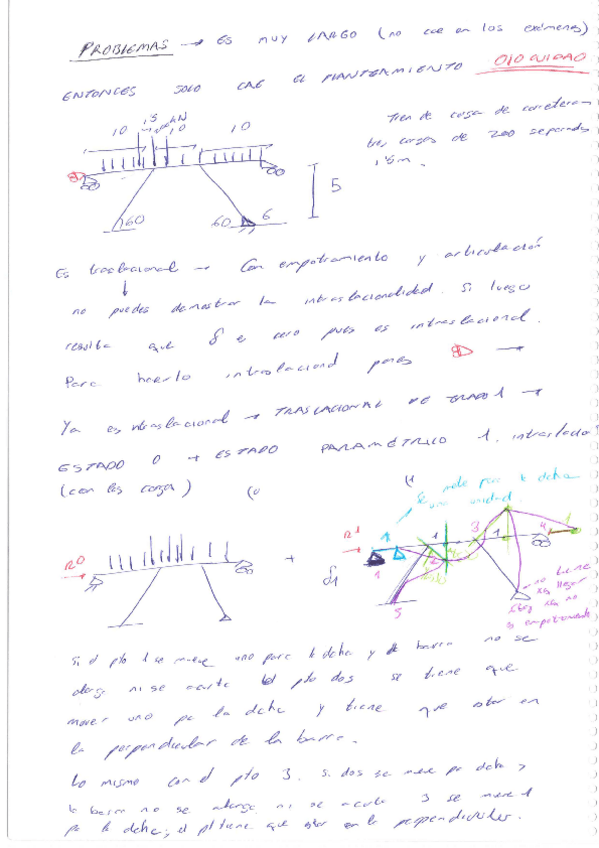 PROBLEMAS → ES MUY LARGO (no cae en los exámenes)
ENTONCES SOLO CAE EL PLANTEAMIENTO OJO CUIDAO
15 kN
10 10 10
Tren de carga de carretera
tres cargas de 200 separadas
1'5m.
5
60 60 6
Es traslacional → Con empotramiento y articulación
no puedes demostrar la intraslacionalidad. Si luego
resulta que δ es cero pues es intraslacional.
Para hacerlo intraslacional pones →
Ya es intraslacional → TRASLACIONAL DE GRADO 1 →
ESTADO 0 + ESTADO PARAMÉTRICO 1. intraslacio
(con las cargas) (0 (1
Se mete para la dcha
una unidad.
R0 + δ1 R1
1 1 2 3 1 4
5
no tiene
no
empotramiento
Si el pto 1 se mueve uno para la dcha y la barra no se
alarga ni se acorta el pto dos se tiene que
mover uno pa la dcha y tiene que estar en
la perpendicular de la barra.
Lo mismo con el pto 3. Si dos se mueve pa dcha y
la barra no se alarga ni se acorta 3 se mueve 1
pa la dcha; el pt tiene que estar en la perpendicular.